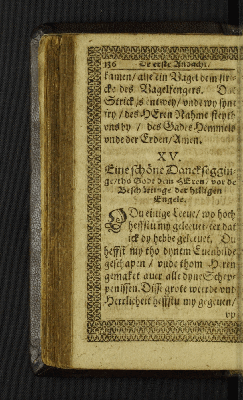 136 De erste Andacht.
kamen/ alse ein Vagel dem stri-
cke des Vagelfengers. De
Strick ys entwey/ vnde wy synt
vry/ des HEren Nahme steyt
vns by / des Gades Hemmels
vnde der Erden/ Amen.
XV.
Eine schöne Dancksegging-
ge/ tho Godt dem HEren/ vor de
Beschüttinge der hilligen
Engele.
Du einige Leeve/ wo hoch
heffstu my geleevet/ eer dat
ick dy hebbe geleevet. Du
heffst my tho dynem Evenbilde
geschapen / vnde thom Heren
gemaket aver alle dyne Schep-
penissen. Disse grote weerde vnd
Herrlicheit heffstu my gegeven/
vp